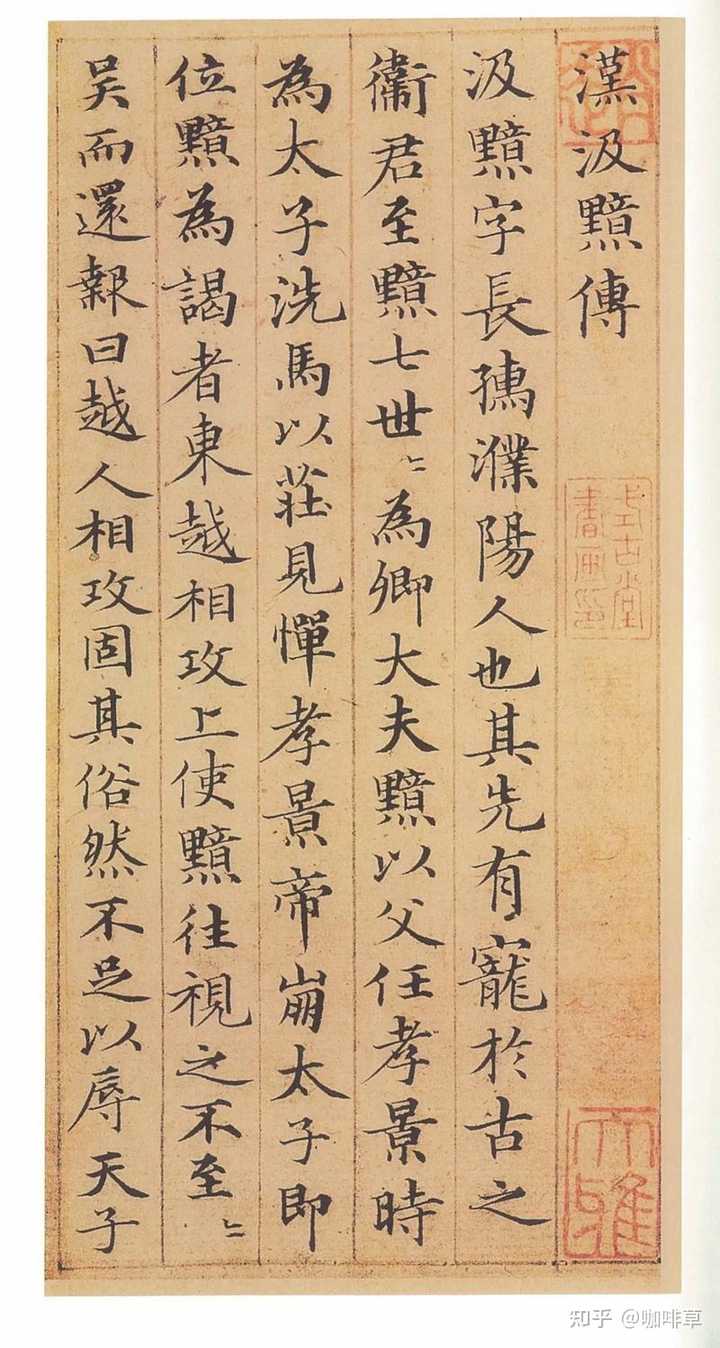 漢汲黯傳
汲黯字長孺濮陽人也其先有寵於古之
衛君至黯七世〻為卿大夫黯以父任孝景時
為太子洗馬以莊見憚孝景帝崩太子即
位黯為謁者東越相攻上使黯往視之不至〻
吳而還報曰越人相攻固其俗然不足以辱天子
式古堂
書畫印
大雅
知乎 @咖啡草